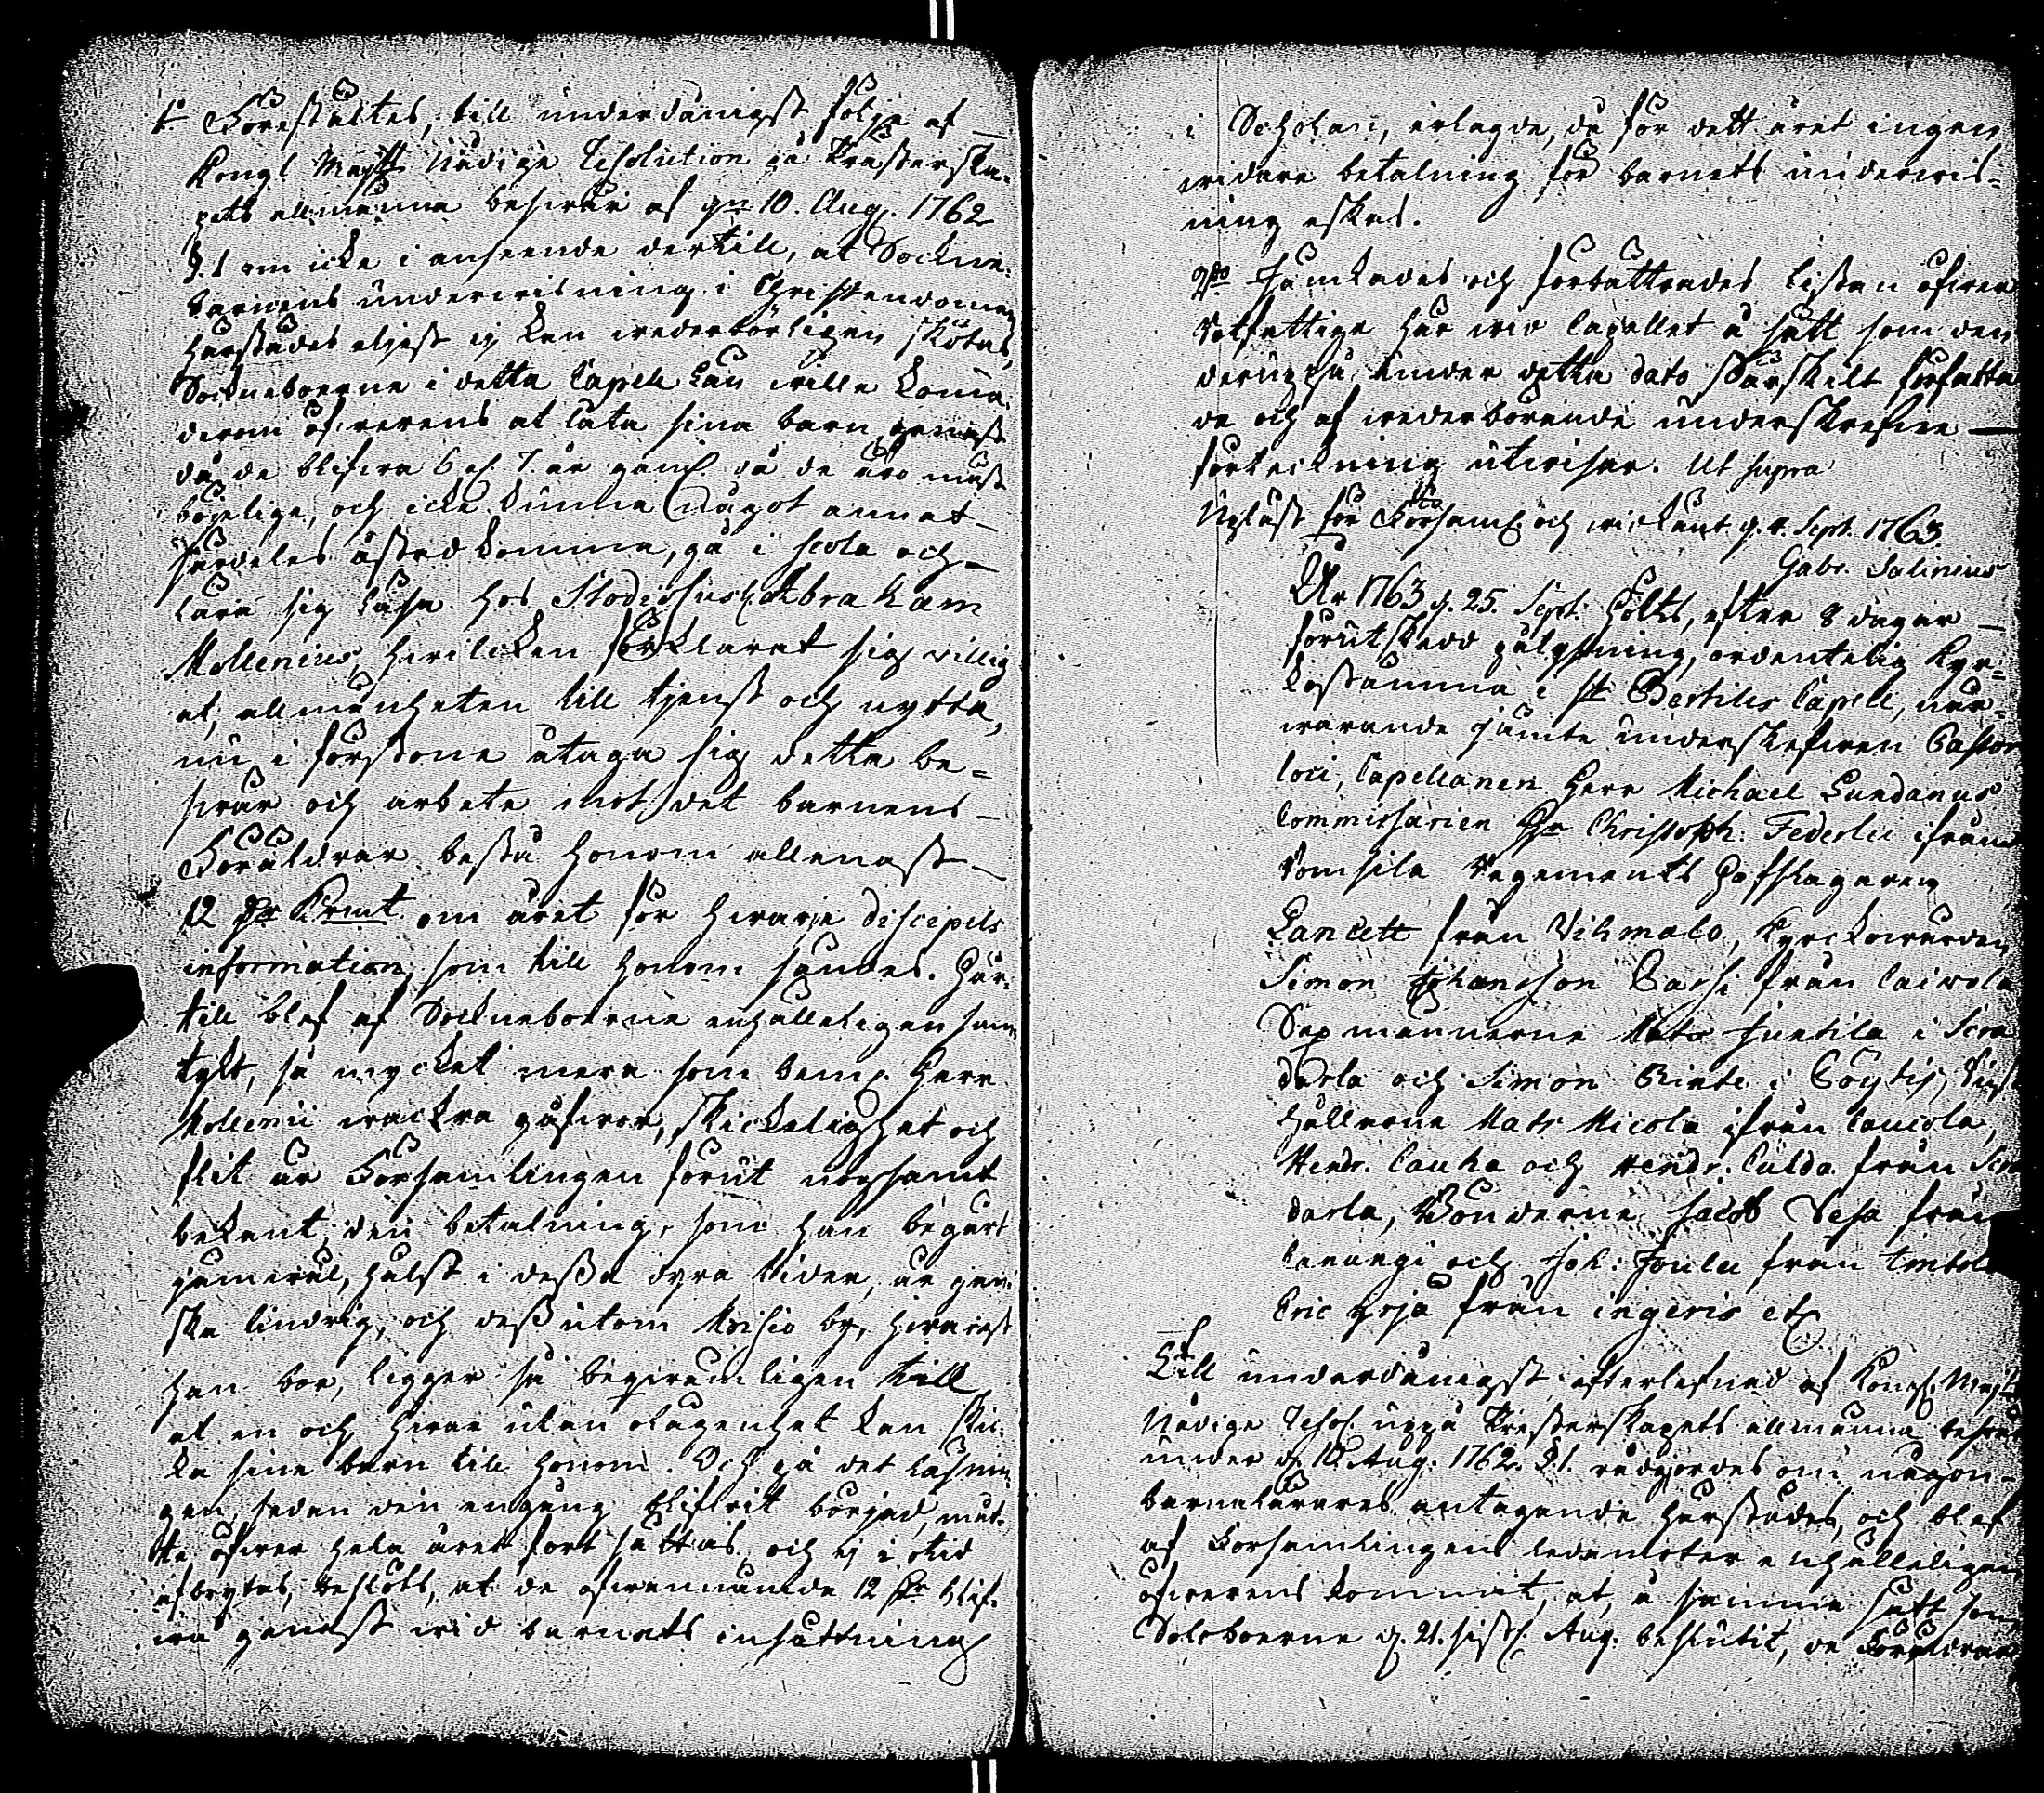 1. Föreställtes, till underdånigst följe af
Kongl. Maj:tts Nådige Resolution på Presterska-
pets allmänna beswär af d. 10. Aug. 1762
§. 1 om icke i anseende dertill, at Sockne-
barnens underwisning i Christendomen
härstädes eljest ej kan wederbörligen skötas,
Sockneboerne i detta Capell Län wille komma
derom öfwerens at låta sina barn genast
då de blifwa 6 el. 7. år gaml. då de äro mäst
böjelige, och icke kunna något annat
särdeles åstadkomma, gå i scola och
lära sig läsa hos Studiosus H. Abraham
Mollenius, hwilcken förklarat sig willig
at, allmänheten till tjenst och nytta,
nu i förstone åtaga sig detta be-
swär och arbete mot det barnens
Föräldrar bestå honom allenast
12 Dr Kmt. om året för hwarje discipels
information, som till honom sändes. Här-
till blef af Sockneboerne enhälleligen sam-
tykt, så mycket mera som bem. Herr
Mollenii wackra gåfwor, skickelighet och
flit är Församlingen förut nogsamt
bekant; den betalning, som han begärt
jämwäl, hälst i dessa dyra tider, är gan-
ska lindrig, och dessutom Moisio by, hwarest
han bor, ligger så beqwämligen till
at en och hwar utan olägenhet kan skic-
ka sine barn till honom. Och på det läsnin-
gen, sedan den engång blifwit börjad, måt-
te öfwer hela året fortsättas och ej i otid
afbrytas, beslöts, at de ofwannämde 12 Dr blif-
wa genast wid barnets insättning
i Scholan, erlagde, då för dett året ingen
widare betalning för barnets underwis-
ning äskas.
2do Jämkades och förbättrades listan öfwer
Rotfattige här wid Capellet å sätt som den
deruppå under detta dato särskilt författa-
de och af wederbörande underskrefwne
förteckning utwisar. Ut supra
Upläst för Församl. och widkänt d. 4. Sept. 1763.
Gabr. Salinius
År 1763 d. 25. Sept. Hölts, efter 8 dagar
förut skedd pålysning, ordentelig Kyr-
kostämma i St Bertils Capell, när-
warande jämte underskrefwen Pastor
loci, Capellanen Herr Michael Lundanus
Commissarien Hr Christoph: Federlei ifrån
Regements Hofslagaren
Lancett från Vihmalo, Kyrckowärden
Simon Johansson Passi från Caiwola
Sexmännerne Mats Juntila i
darla och Simon Rinte i Pöytis,
hållarne Mats Nicola ifrån Caucola,
Hendr. Cauka och Hendr. Culda från
darla, Bönderne Jacob Sesa från
och Joh: Joulu från
Eric Yrjä från ingeris etc.
Till underdånigst efterlefnad af Kongl. Maj:ts
Nådige Resol. uppå Presterskapets allmänna beswär
under d. 10 Aug. 1762. §. 1. rådgjordes om någon
barnalärares antagande härstädes, och blef
af Församlingens ledamöter enhälleligen
öfwerens kommit, at, å samma sätt som
Saloboerne d. 21. sistl. Aug. beslutit, de Föräldrar